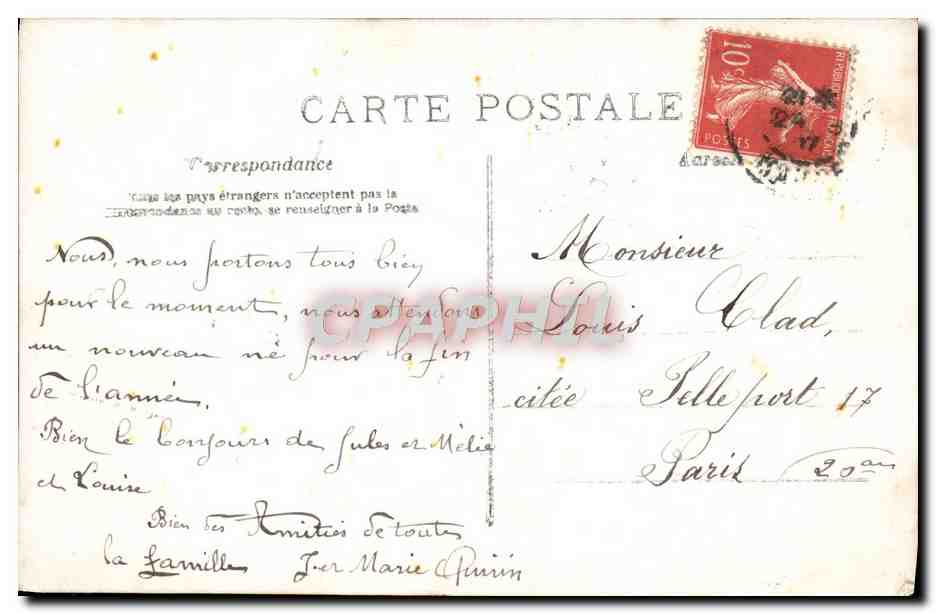 CARTE POSTALE
Correspondance
Tous les pays étrangers n'acceptent pas la
correspondance au recto, se renseigner à la Poste
Nous, nous portons tous bien
pour le moment, nous attendons
un nouveau né pour la fin
de l'année,
Bien le bonjours de Jules et Mélie
et Louise
Bien des Amitiés de toute
la famille J. et Marie Quirin
10c
REPUBLIQUE FRANCAISE
POSTES
Adresse
Monsieur
Louis Clad,
citée Pelleport 17
Paris 20 an
CPAPHIL